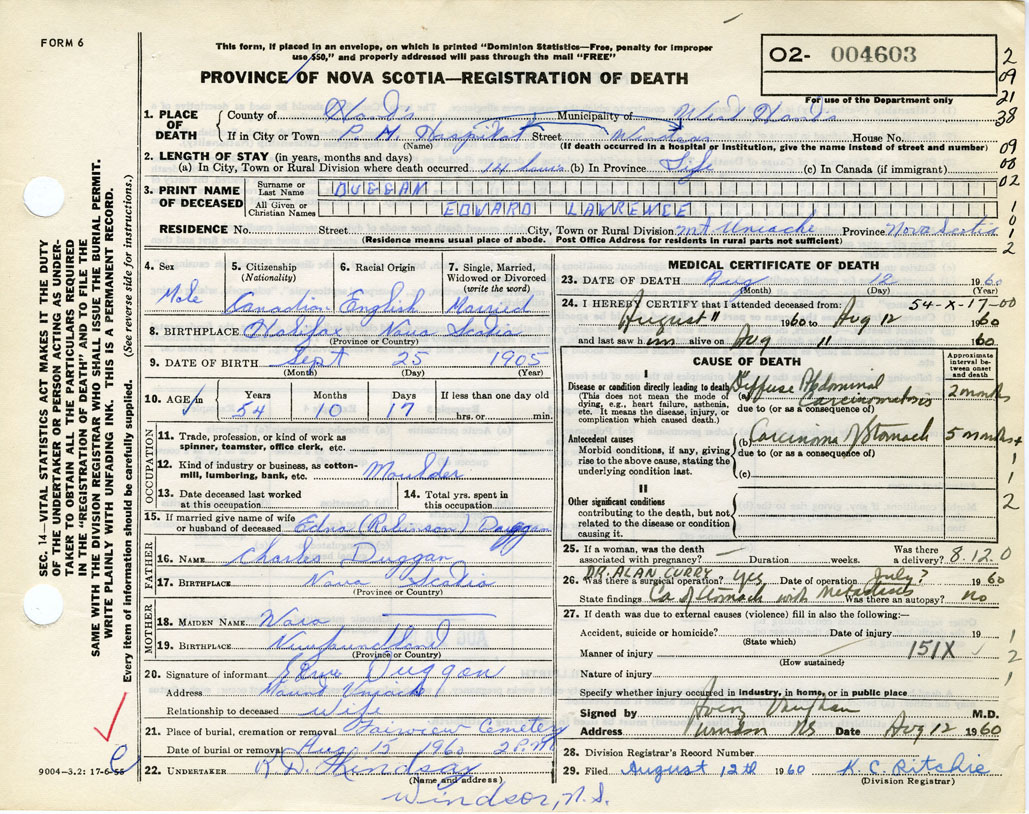 FORM 6
This form, if placed in an envelope, on which is printed "Dominion Statistics—Free, penalty for improper
use $50," and properly addressed will pass through the mail "FREE"
PROVINCE OF NOVA SCOTIA—REGISTRATION OF DEATH
O2- 004603
For use of the Department only
2
09
21
38
09
02
1
0
1
2
1. PLACE OF DEATH
County of Hants Municipality of West Hants
If in City or Town P M Hospital Street Windsor House No.
(Name) (If death occurred in a hospital or institution, give the name instead of street and number)
2. LENGTH OF STAY (in years, months and days)
(a) In City, Town or Rural Division where death occurred 14 hours (b) In Province Life (c) In Canada (if immigrant)
3. PRINT NAME OF DECEASED
Surname or Last Name DUGGAN
All Given or Christian Names EDWARD LAWRENCE
RESIDENCE No. Street City, Town or Rural Division Mt Uniacke Province Nova Scotia
(Residence means usual place of abode. Post Office Address for residents in rural parts not sufficient)
4. Sex 5. Citizenship 6. Racial Origin 7. Single, Married,
(Nationality) Widowed or Divorced
(write the word)
Male Canadian English Married
8. BIRTHPLACE Halifax Nova Scotia
(Province or Country)
9. DATE OF BIRTH Sept 25 1905
(Month) (Day) (Year)
10. AGE IN Years Months Days If less than one day old
54 10 17 hrs. or min.
OCCUPATION
11. Trade, profession, or kind of work as
spinner, teamster, office clerk, etc.
12. Kind of industry or business, as cotton-
mill, lumbering, bank, etc. Moulder
13. Date deceased last worked
at this occupation
14. Total yrs. spent in
this occupation
15. If married give name of wife
or husband of deceased Edna (Robinson) Duggan
FATHER
16. NAME Charles Duggan
17. BIRTHPLACE Nova Scotia
(Province or Country)
MOTHER
18. MAIDEN NAME
19. BIRTHPLACE Newfoundland
(Province or Country)
20. Signature of informant Duggan
Address Mount Uniacke
Relationship to deceased Wife
21. Place of burial, cremation or removal Fairview Cemetery
Date of burial or removal Aug 15 1960 2 P.M.
22. UNDERTAKER
(Name and address)
Windsor, N.S.
MEDICAL CERTIFICATE OF DEATH
23. DATE OF DEATH Aug 12 1960
(Month) (Day) (Year)
24. I HEREBY CERTIFY that I attended deceased from: 54-X-17-00
August 11 1960 to Aug 12 1960
and last saw him alive on Aug 11 1960
CAUSE OF DEATH
Approximate interval between onset and death
I
Disease or condition directly leading to death
(This does not mean the mode of
dying, e.g., heart failure, asthenia,
etc. It means the disease, injury, or
complication which caused death.)
(a) Diffuse Abdominal Carcinomatosis 2 months
due to (or as a consequence of)
Antecedent causes
Morbid conditions, if any, giving
rise to the above cause, stating the
underlying condition last.
(b) Carcinoma Stomach 5 months +
due to (or as a consequence of)
(c)
1
1
2
II
Other significant conditions
contributing to the death, but not
related to the disease or condition
causing it.
25. If a woman, was the death
associated with pregnancy? — Duration weeks. Was there
a delivery? 8.12.0
DR. ALAN CURRY
26. Was there a surgical operation? yes Date of operation July? 1960
State findings Ca of stomach with metastases Was there an autopsy? no
27. If death was due to external causes (violence) fill in also the following:—
Accident, suicide or homicide? Date of injury 19
(State which)
Manner of injury 151X
(How sustained)
Nature of injury
1
2
1
Specify whether injury occurred in industry, in home, or in public place
Signed by Vaughan M.D.
Address Windsor NS Date Aug 12 1960
28. Division Registrar's Record Number
29. Filed August 12th 1960 K. C. Ritchie
(Division Registrar)
SEC. 14—VITAL STATISTICS ACT MAKES IT THE DUTY
OF THE UNDERTAKER OR PERSON ACTING AS UNDER-
TAKER TO OBTAIN ALL THE PARTICULARS REQUIRED
IN THE "REGISTRATION OF DEATH" AND TO FILE THE
SAME WITH THE DIVISION REGISTRAR WHO SHALL ISSUE THE BURIAL PERMIT.
WRITE PLAINLY WITH UNFADING INK. THIS IS A PERMANENT RECORD.
Every item of information should be carefully supplied. (See reverse side for instructions.)
9004-3.2: 17-6-55